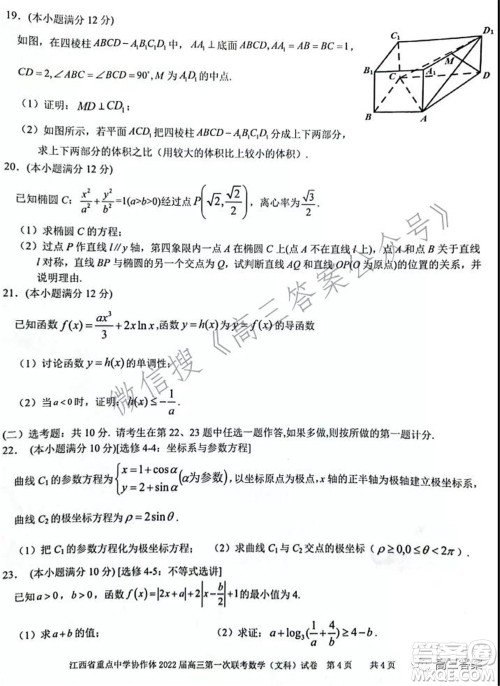 19. (本小题满分 12 分)
如图，在四棱柱 ABCD－A₁B₁C₁D₁ 中，AA₁⊥底面 ABCD，AA₁=AB=BC=1，
CD=2,∠ABC=∠BCD=90°，M 为 A₁D₁ 的中点.
(1) 证明：MD⊥CD₁；
(2) 如图所示，若平面 ACD₁ 把四棱柱 ABCD－A₁B₁C₁D₁ 分成上下两部分，
求上下两部分的体积之比 (用较大的体积比上较小的体积).
C₁
D₁
B₁
A₁
M
C
D
B
A
20. (本小题满分 12 分)
已知椭圆 C：x²/a²+y²/b²=1(a>b>0)经过点 P(√2, √2/2)，离心率为 √3/2.
(1) 求椭圆 C 的方程；
(2) 过点 P 作直线 l//y 轴，第四象限内一点 A 在椭圆上(点 A 不在直线 l 上)，点 A 和点 B 关于直线
l 对称，直线 BP 与椭圆的另一个交点为 Q，试判断直线 AQ 和直线 OP(O 为原点)的位置的关系，并
说明理由.
21. (本小题满分 12 分)
已知函数 f(x)=ax³/3+2x ln x,函数 y=h(x)为 y=f(x)的导函数
(1) 讨论函数 y=h(x)的单调性；
(2) 当 a<0时，证明：h(x)≤－1/a.
(二) 选考题：共 10 分. 请考生在第 22、23 题中任选一题作答,如果多做，则按所做的第一题计分.
22. (本小题满分 10 分)[选修 4-4：坐标系与参数方程]
曲线 C₁ 的参数方程为{x=1+cosα y=2+sinα(α为参数)，以坐标原点为极点，x 轴的正半轴为极轴建立极坐标系，
曲线 C₂ 的极坐标方程为 ρ=2sinθ.
(1) 把 C₁ 的参数方程化为极坐标方程； (2) 求曲线 C₁ 与 C₂ 交点的极坐标 (ρ≥0,0≤θ<2π).
23. (本小题满分 10 分) [选修 4-5：不等式选讲]
已知 a>0，b>0，函数 f(x)=|2x+a|+2|x－b/2|+1 的最小值为 4.
(1) 求 a+b 的值； (2) 求证：a+log₃(1/a+4/b)≥4－b.
江西省重点中学协作体 2022 届高三第一次联考数学（文科）试卷 第 4 页 共 4 页
微信搜《高三答案公众号》
高三答案